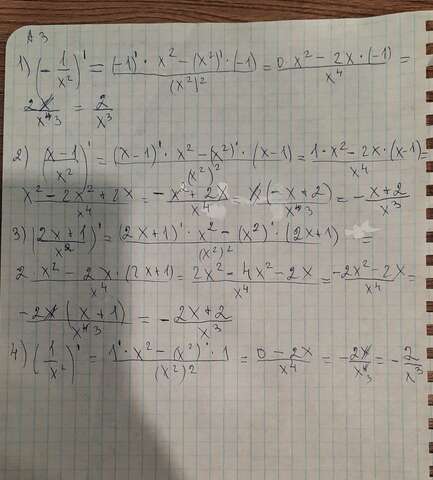 ДЗ
1) (-1/x²)' = ((-1)' · x² - (x²)' · (-1))/(x²)² = (0 · x² - 2x · (-1))/x⁴ =
2x/x⁴3 = 2/x³
2) ((x-1)/x²)' = ((x-1)' · x² - (x²)' · (x-1))/(x²)² = (1 · x² - 2x · (x-1))/x⁴ =
(x² - 2x² + 2x)/x⁴ = -(x² + 2x)/x⁴ = x(-x+2)/x⁴3 = -(x+2)/x³
3) ((2x+1)/x²)' = ((2x+1)' · x² - (x²)' · (2x+1))/(x²)² =
(2 x² - 2x · (2x+1))/x⁴ = (2x² - 4x² - 2x)/x⁴ = (-2x² - 2x)/x⁴ =
-2x(x+1)/x⁴3 = -(2x+2)/x³
4) (1/x²)' = (1' · x² - (x²)' · 1)/(x²)² = (0 - 2x)/x⁴ = -2x/x⁴3 = -2/x³